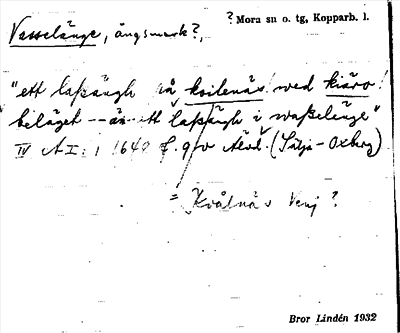 Vasselänge, ängsmark?,
? Mora sn o. tg, Kopparb. l.
"ett laßängh på koilenäs wed kiäro
beläget -- än ett laßängh i waßelänge"
IV A I: 1 1640 f. 90v Älvd. (Sälja - Oxberg)
= Kvålnäs Venj?
Bror Lindén 1932